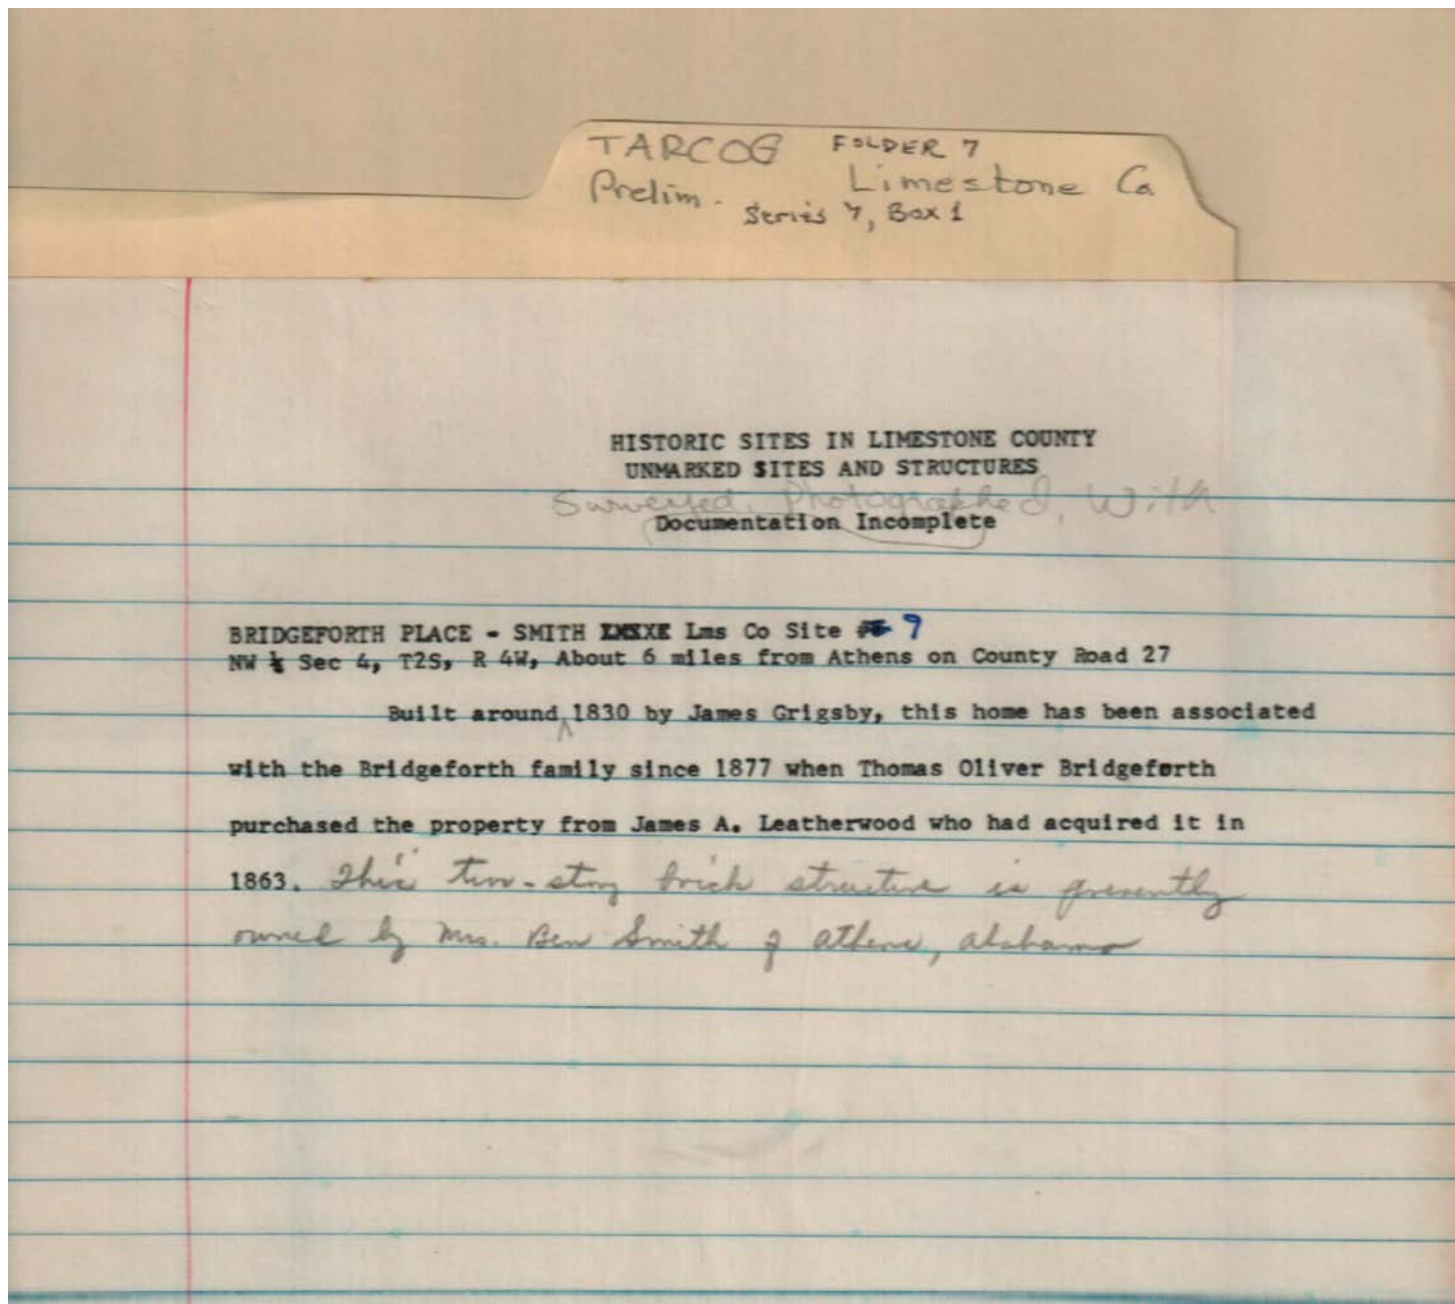 TARCOG FOLDER 7
Prelim. Limestone Co
Series 7, Box 1
HISTORIC SITES IN LIMESTONE COUNTY
UNMARKED SITES AND STRUCTURES
Surveyed, Photographed, With
Documentation Incomplete
BRIDGEFORTH PLACE - SMITH Lms Co Site 9
NW ¼ Sec 4, T2S, R 4W, About 6 miles from Athens on County Road 27
Built around 1830 by James Grigsby, this home has been associated
with the Bridgeforth family since 1877 when Thomas Oliver Bridgeforth
purchased the property from James A. Leatherwood who had acquired it in
1863. This two-story brick structure is presently
owned by Mrs. Ben Smith of Athens, Alabama